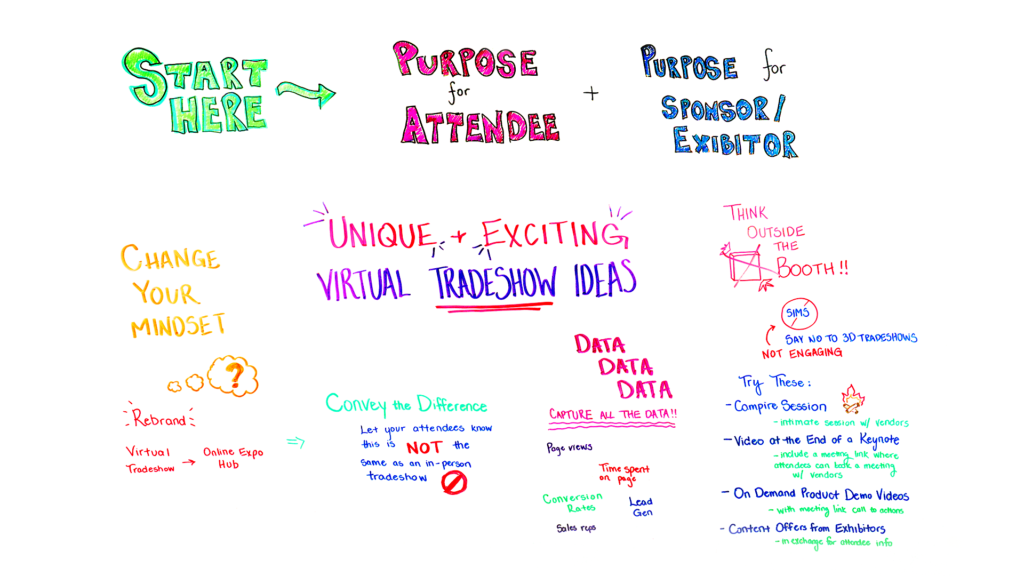 START
HERE
PURPOSE
for
ATTENDEE
+
PURPOSE for
SPONSOR/
EXIBITOR
UNIQUE + EXCITING
VIRTUAL TRADESHOW IDEAS
CHANGE
YOUR
MINDSET
?
Rebrand
Virtual
Tradeshow → Online Expo
Hub
Convey the Difference
Let your attendees know
this is NOT the
same as an in-person
tradeshow
DATA
DATA
DATA
CAPTURE ALL THE DATA!!
Page views
Time spent
on page
Conversion
Rates
Lead
Gen
Sales reps
THINK
OUTSIDE
THE
BOOTH!!
SIMS
SAY NO TO 3D TRADESHOWS
NOT ENGAGING
Try These:
- Campire Session
- intimate session w/ vendors
- Video at the End of a Keynote
- include a meeting link where
attendees can book a meeting
w/ vendors
- On Demand Product Demo Videos
- with meeting link call to actions
- Content Offers from Exhibitors
- in exchange for attendee info